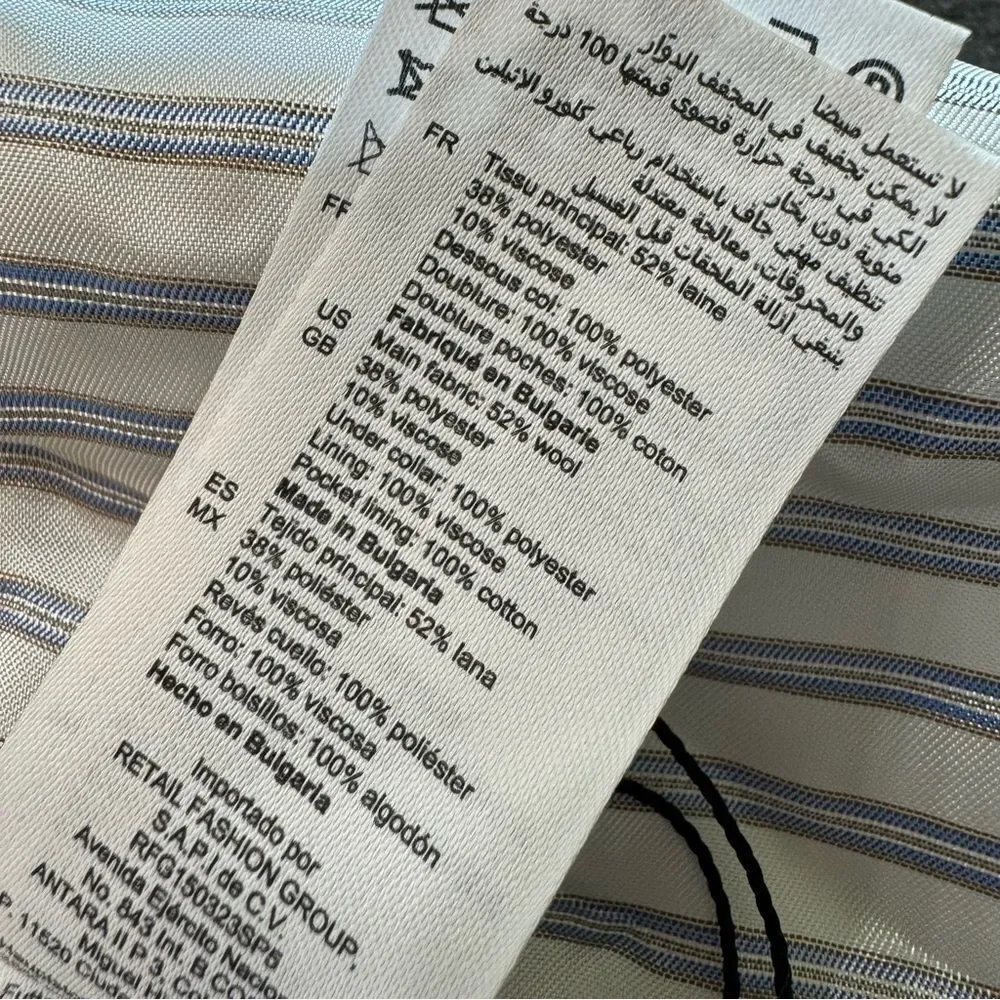 لا تستعمل مبيضا
لا يمكن تجفيف في المجفف الدوّار
الكي في درجة حرارة قصوى قيمتها 100 درجة
مئوية دون بخار
تنظيف مهني جاف باستخدام رباعي كلورو الإتيلين
والمحروقات، معالجة معتدلة
ينبغي إزالة الملحقات قبل الغسل
FR
Tissu principal: 52% laine
38% polyester
10% viscose
Dessous col: 100% polyester
Doublure: 100% viscose
Doublure poches: 100% coton
Fabriqué en Bulgarie
US
GB
Main fabric: 52% wool
38% polyester
10% viscose
Under collar: 100% polyester
Lining: 100% viscose
Pocket lining: 100% cotton
Made in Bulgaria
ES
MX
Tejido principal: 52% lana
38% poliéster
10% viscosa
Revés cuello: 100% poliéster
Forro: 100% viscosa
Forro bolsillos: 100% algodón
Hecho en Bulgaria
Importado por
RETAIL FASHION GROUP,
S.A.P.I de C.V.
RFG150323SP5
Avenida Ejército Nacional
No. 843 Int. B
ANTARA II P 3,
P. 11520
Miguel